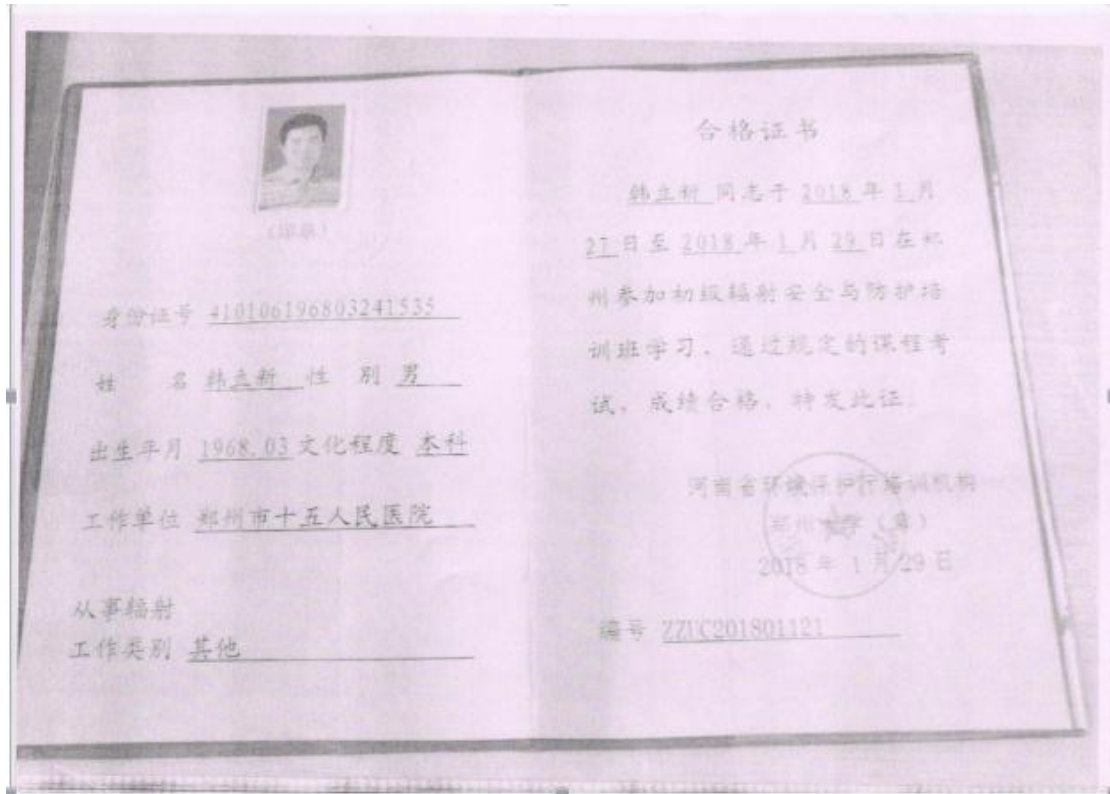 (印章)
身份证号 410106196803241535
姓 名 韩立新 性 别 男
出生年月 1968.03 文化程度 本科
工作单位 郑州市十五人民医院
从事辐射
工作类别 其他
合格证书
韩立新 同志于 2018 年 1 月
27 日至 2018 年 1 月 29 日在郑
州参加初级辐射安全与防护培
训班学习,通过规定的课程考
试,成绩合格,特发此证。
河南省环境保护厅培训机构
郑州大学(章)
2018 年 1 月 29 日
编号 ZZUC201801121